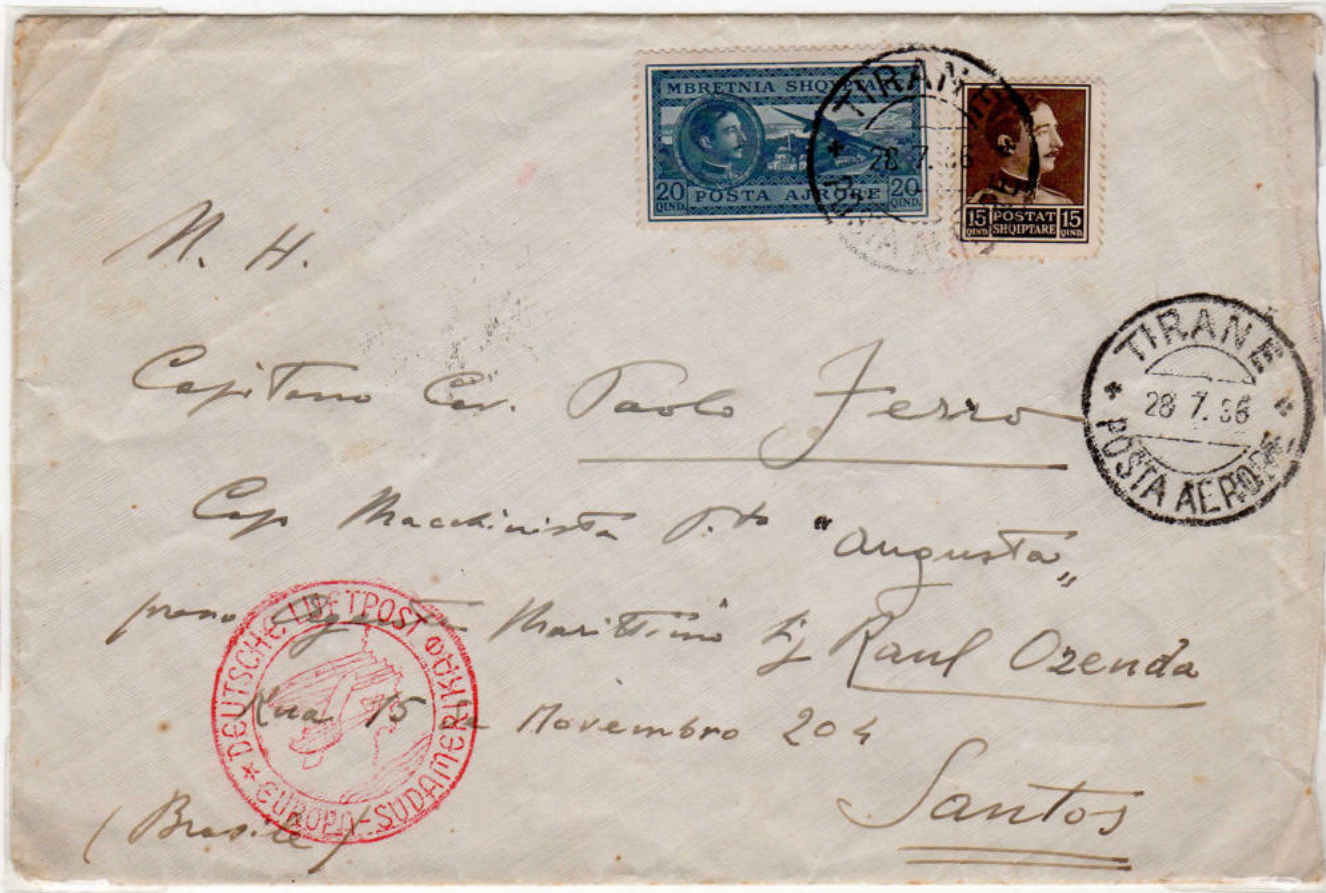 MBRETNIA SHQIPTARE
20 QIND. POSTA AJRORE 20 QIND.
15 QIND. POSTAT SHQIPTARE 15 QIND.
TIRANE
28 7. 36
POSTA AERORE
TIRANE
28 7. 36
POSTA AERORE
N. H.
Capitano Cav. Paolo Ferro
Cap Macchinista P.to "Augusta"
presso Agente Marittimo Sig Raul Ozenda
Rua 15 de Novembro 204
Santos
(Brasile)
DEUTSCHE LUFTPOST
EUROPA-SÜDAMERIKA